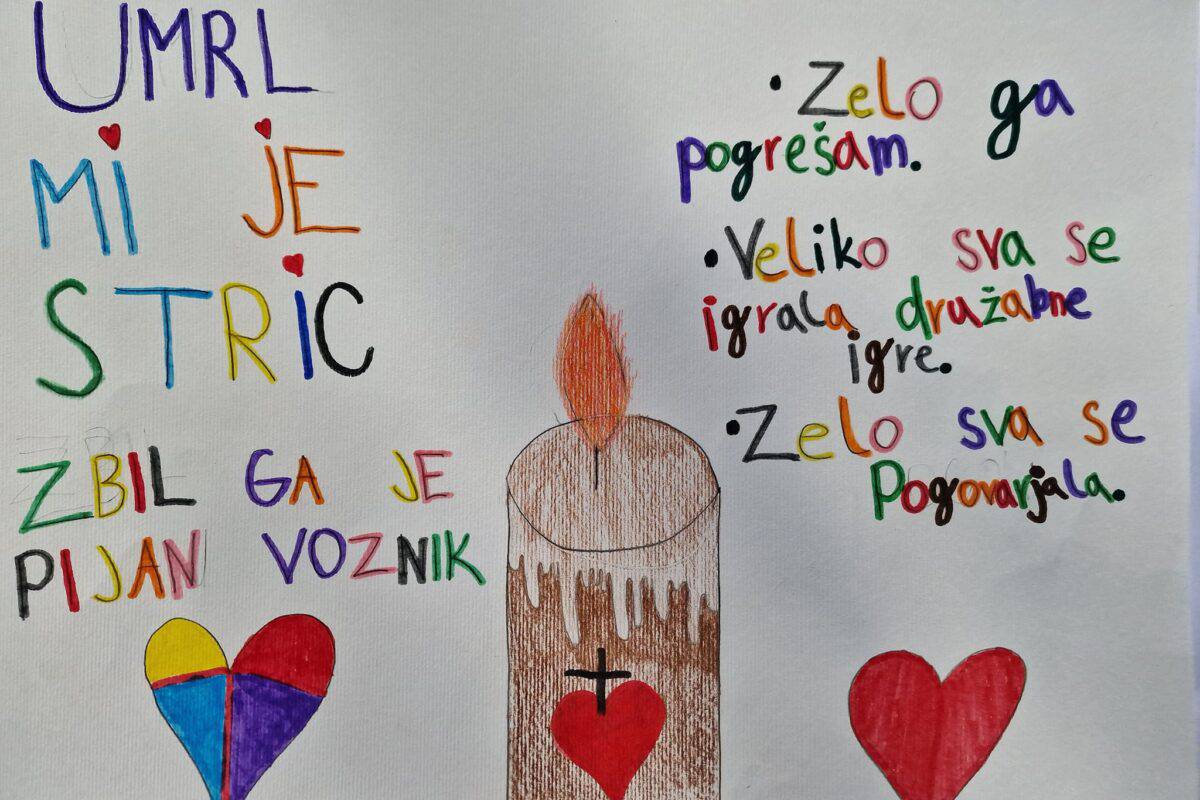 UMRL
MI JE
STRIC
ZBIL GA JE
PIJAN VOZNIK
• Zelo ga
pogrešam.
• Veliko sva se
igrala družabne
igre.
• Zelo sva se
Pogovarjala.